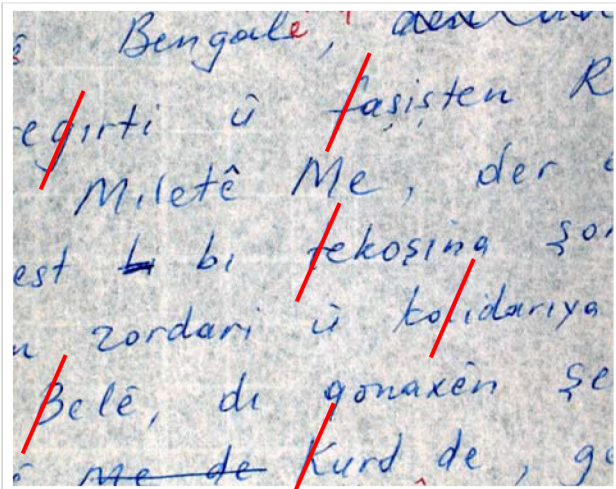 Bengalê,
egirti û faşişten R
Miletê Me, der
est bi tekoşina şor
zordari û kolidariya
Belê, di qonaxên şe
me de Kurd de, ga